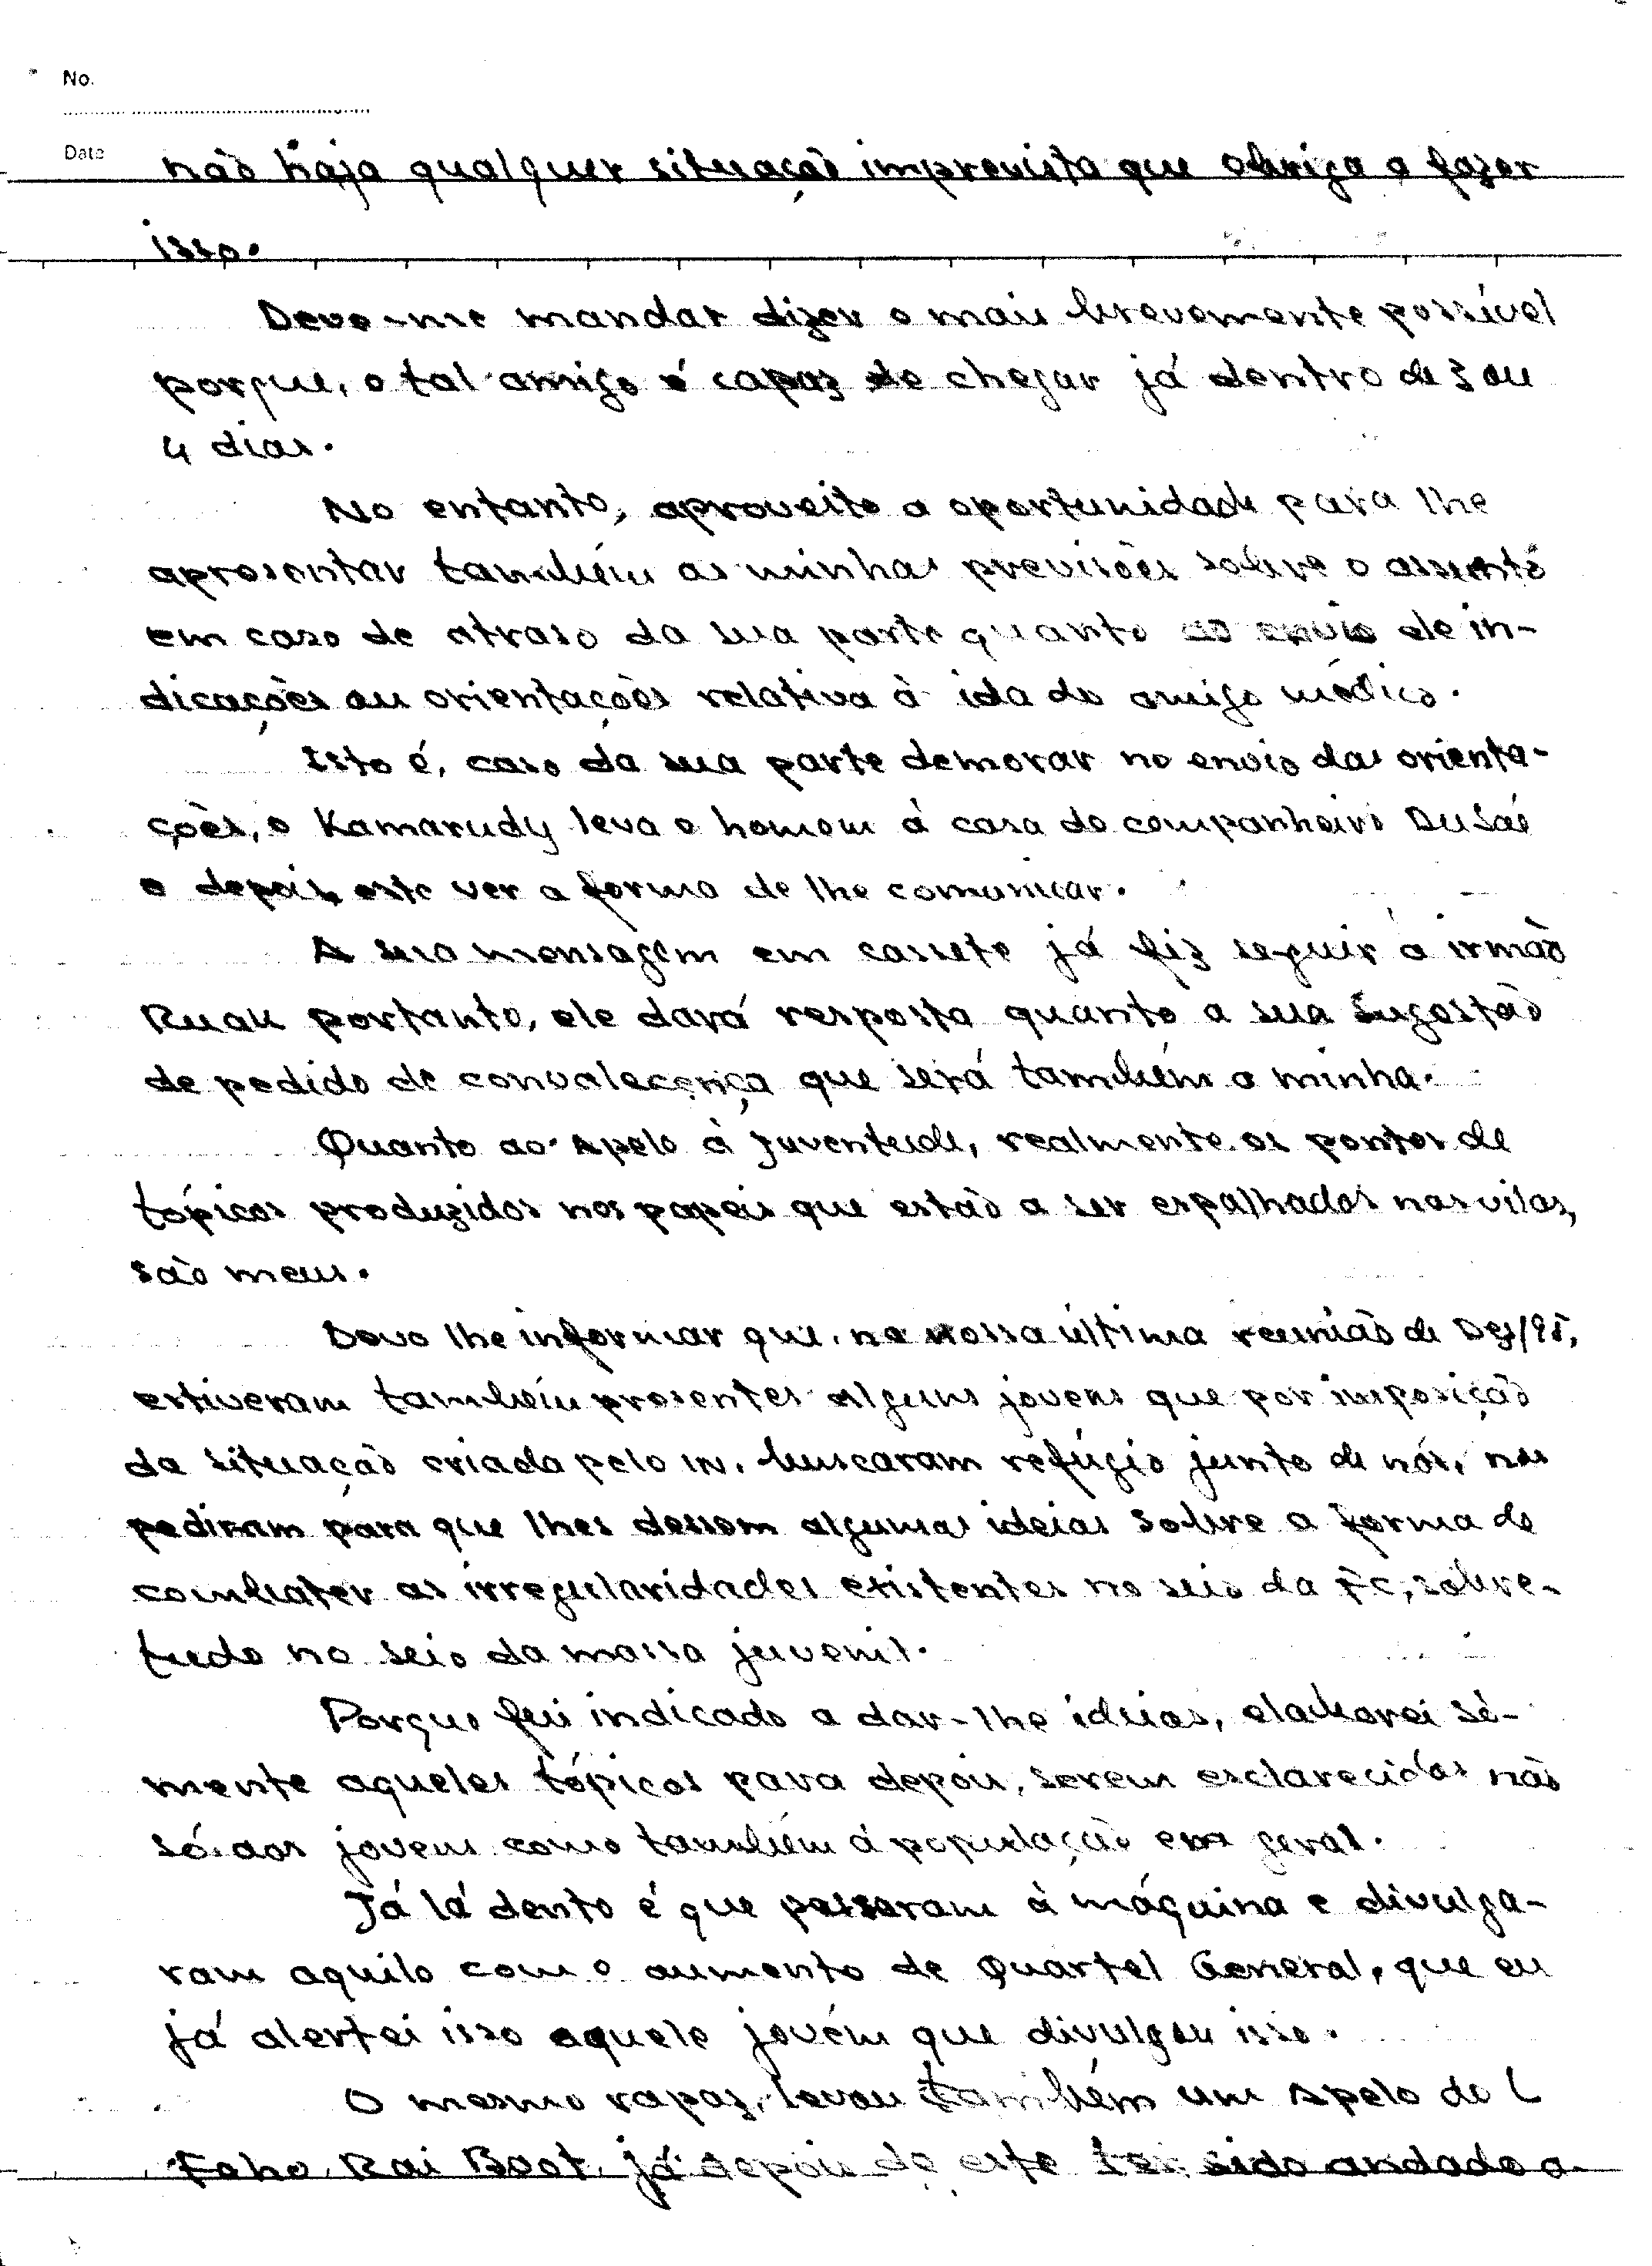 No.
Date
não haja qualquer situação imprevista que obriga a fazer
isso.
Deve-me mandar dizer o mais brevemente possível
porque, o tal amigo é capaz de chegar já dentro de 3 ou
4 dias.
No entanto, aproveito a oportunidade para lhe
apresentar também as minhas previsões sobre o assunto
em caso de atraso da sua parte quanto ao envio de in-
dicações ou orientações relativa à ida do amigo médico.
Isto é, caso da sua parte demorar no envio das orienta-
ções, o Kamarudy leva o homem à casa do companheiro
e depois este ver a forma de lhe comunicar.
A sua mensagem em cassete já fiz seguir a irmão
Ruak portanto, ele dará resposta quanto a sua sugestão
de pedido de convalecença que será também a minha.
Quanto ao Apelo à Juventude, realmente os pontos de
tópicos produzidos nos papeis que estão a ser espalhados nas vilas,
são meus.
Devo lhe informar que, na nossa última reunião de Dez/95,
estiveram também presentes alguns jovens que por imposição
da situação criada pelo in. buscaram refúgio junto de nós, nos
pediram para que lhes dessem algumas ideias sobre a forma de
combater as irregularidades existentes no seio da Fc, sobre-
tudo no seio da massa juvenil.
Porque fui indicado a dar-lhe ideias, elaborei sò-
mente aqueles tópicos para depois, serem esclarecidos não
só aos jovens como também á população em geral.
Já lá dento é que passaram à máquina e divulga-
ram aquilo com o aumento de Quartel General, que eu
já alertei isso aquele jovém que divulgou isso.
O mesmo rapaz, levou também um Apelo do L
Foho Rai Boot, já depois de este ter sido andado a